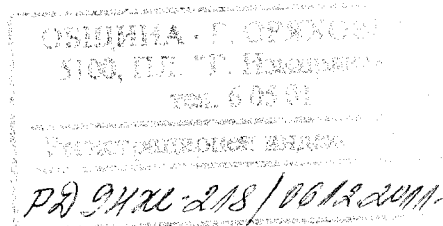 ОБЩИНА - Г. ОРЯХОВ
5100, ПЛ. "Г.
тел. 6 05 01
Регистрационен индекс
РД 9НХС-218/06.12.2011.